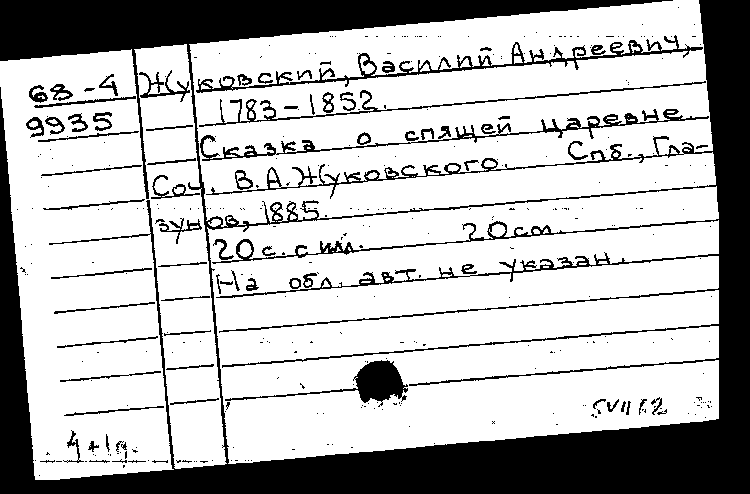 68-4 Жуковский, Василий Андреевич,
9935 1783-1852.
Сказка о спящей царевне.
Соч. В.А.Жуковского. Спб., Гла-
зунов, 1885.
20с. с илл. 20см.
На обл. авт. не указан.
4+1д.